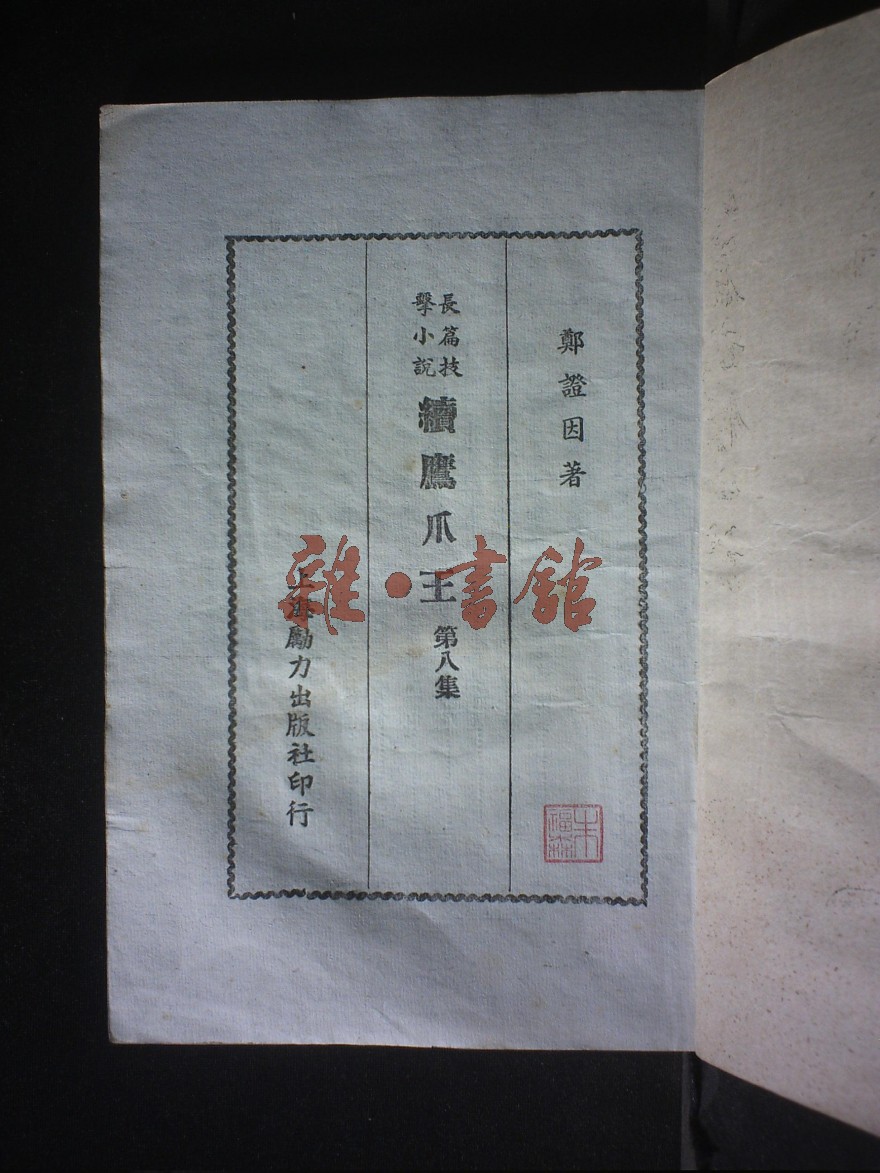 鄭證因著
長篇技擊小說
續鷹爪王
第八集
上海勵力出版社印行
雜·書館
朱福森